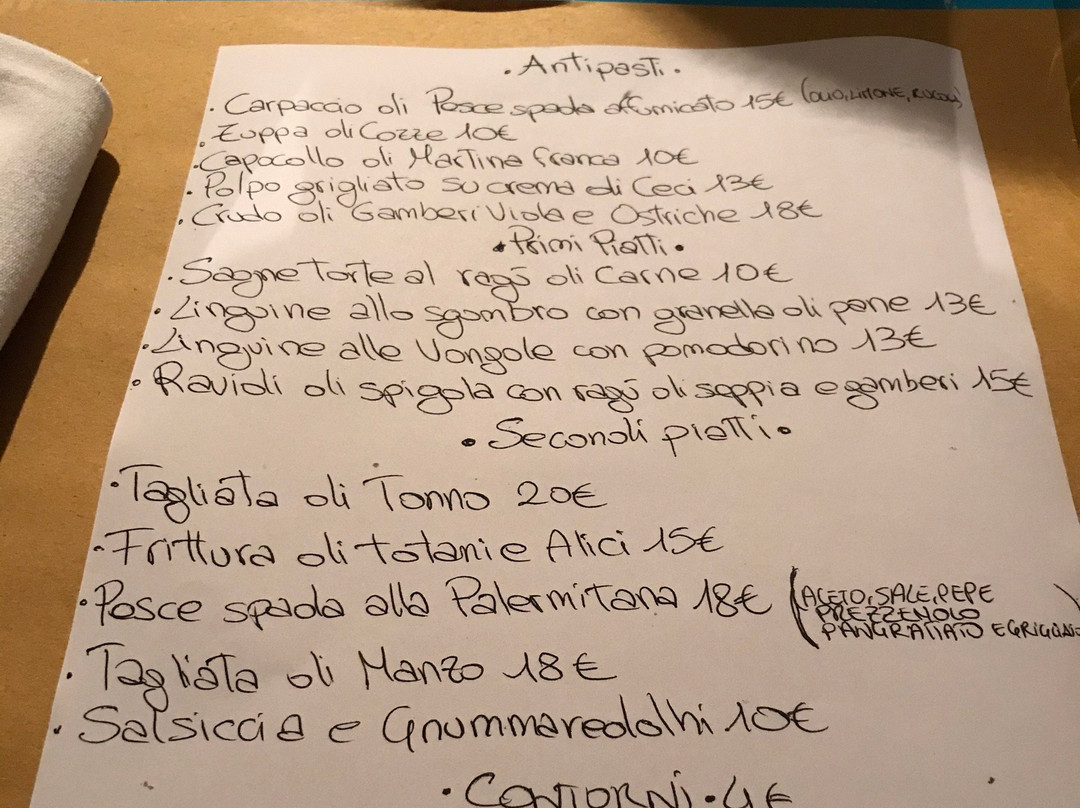 . Antipasti .
. Carpaccio di Pesce spada affumicato 15€ (OLIO, LIMONE, RUCOLA)
. Zuppa di Cozze 10€
. Capocollo di Martina Franca 10€
. Polpo grigliato su crema di Ceci 13€
. Crudo di Gamberi Viola e Ostriche 18€
• Primi Piatti •
. Sagne Torte al ragù di Carne 10€
. Linguine allo sgombro con granella di pane 13€
. Linguine alle Vongole con pomodorino 13€
• Ravioli di spigola con ragù di seppia e gamberi 15€
• Secondi piatti •
. Tagliata di Tonno 20€
. Frittura di totani e Alici 15€
. Pesce spada alla Palermitana 18€ (ACETO, SALE, PEPE
PREZZEMOLO
PANGRATTATO E
. Tagliata di Manzo 18€
. Salsiccia e Gnummareddhi 10€
• CONTORNI • 4€